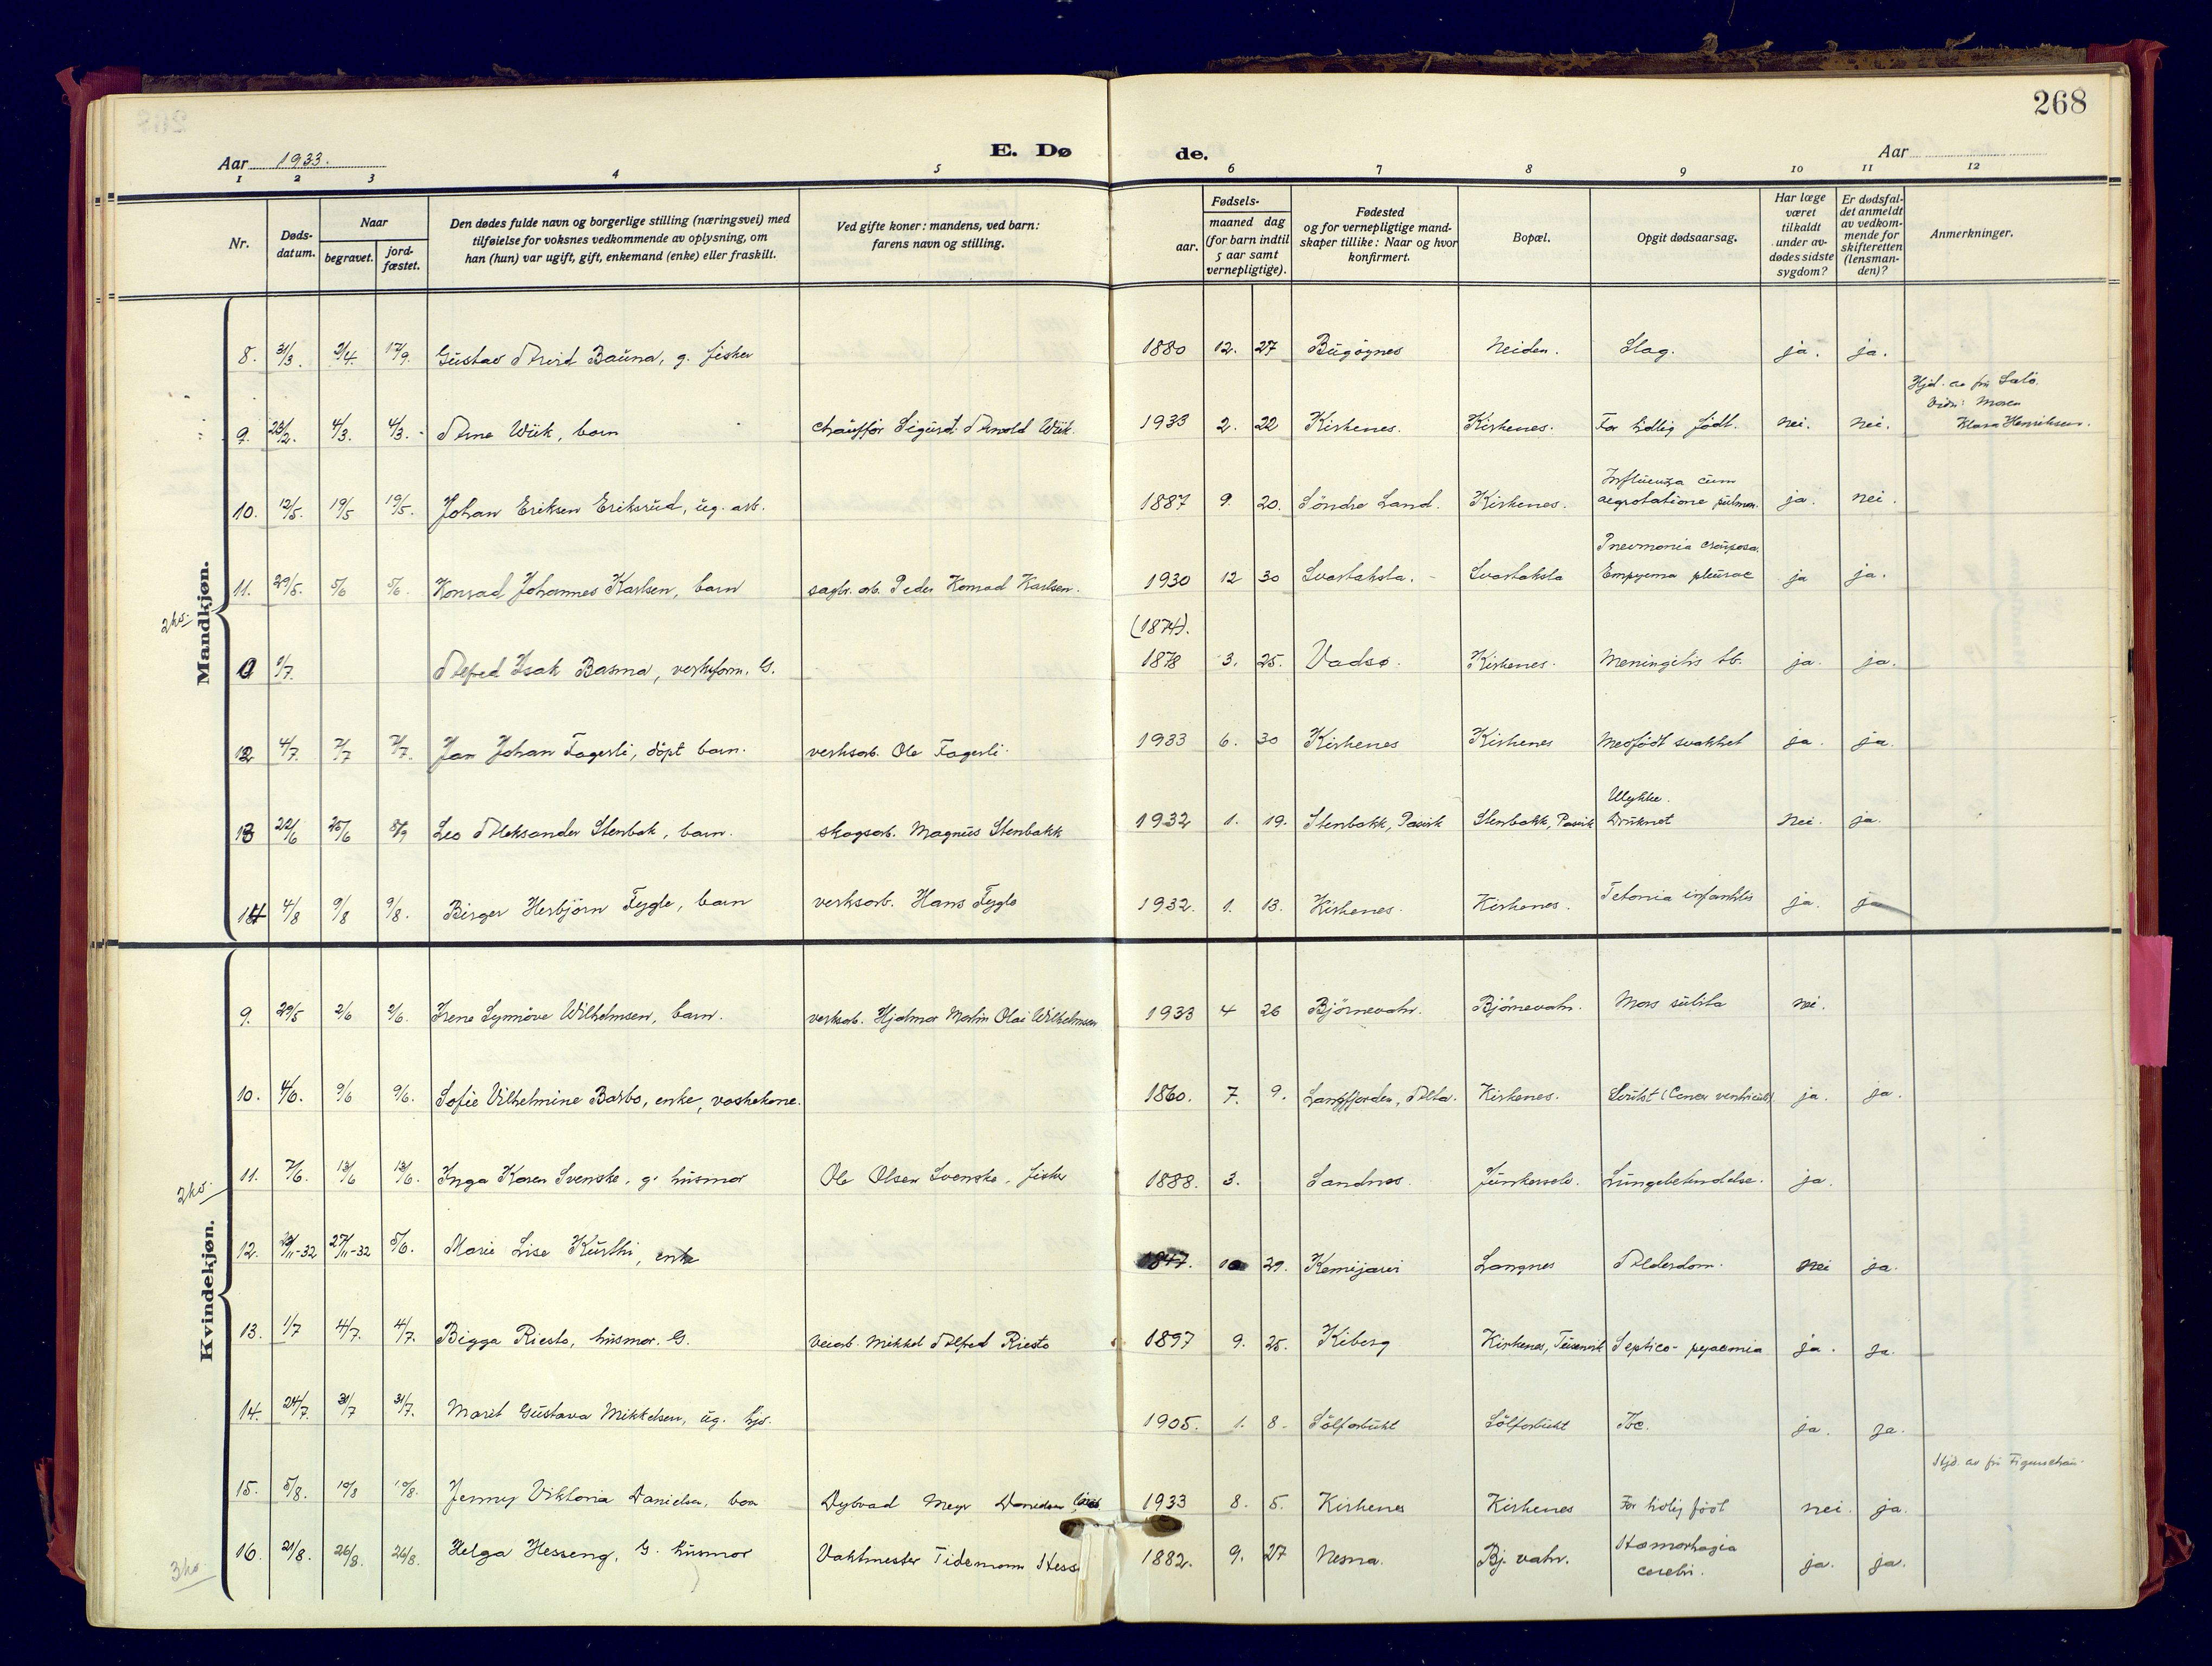 268
Aar 1933.
E. Dø de.
Aar
1 2 3 4 5 6 7 8 9 10 11 12
Nr.
Døds-
datum.
Naar
begravet.
jord-
fæstet.
Den dødes fulde navn og borgerlige stilling (næringsvei) med
tilføielse for voksnes vedkommende av oplysning, om
han (hun) var ugift, gift, enkemand (enke) eller fraskilt.
Ved gifte koner: mandens, ved barn:
farens navn og stilling.
Fødsels-
aar.
maaned dag
(for barn indtil
5 aar samt
vernepligtige).
Fødested
og for vernepligtige mand-
skaper tillike: Naar og hvor
konfirmert.
Bopæl.
Opgit dødsaarsag.
Har læge
været
tilkaldt
under av-
dødes sidste
sygdom?
Er dødsfal-
det anmeldt
av vedkom-
mende for
skifteretten
(lensman-
den)?
Anmerkninger.
Mandkjøn.
8. 31/3. 2/4. 17/9. Gustav Arvid Bauna, g. fisker 1880 12. 27 Bugøynes Neiden. Slag. ja. ja.
Hjd. av fru Salo.
Vidn: Moren
Klara Henriksen.
9. 23/2. 4/3. 4/3. Arne Wiik, barn chauffør Sigurd Arnold Wiik. 1933 2. 22 Kirkenes. Kirkenes. For tidlig født. nei. nei.
Influenza cum
10. 12/5. 19/5 19/5. Johan Eriksen Eriksrud, ug. arb. 1887 9. 20. Søndre Land. Kirkenes. aegrotatione pulmon. ja. nei.
Pneumonia crouposa.
11. 29/5. 5/6 5/6. Konrad Johannes Karlsen, barn sagbr. arb. Peder Konrad Karlsen. 1930 12 30 Svartaksla. Svartaksla Empyema pleurae ja ja.
2ko.
(1874).
0 1/7. Alfred Isak Basma, verksform. G. 1878 3. 25. Vadsø. Kirkenes. Meningitis tb. ja. ja.
12 4/7. 7/7 7/7. Jan Johan Fagerli, døpt barn. verksarb. Ole Fagerli. 1933 6. 30 Kirkenes Kirkenes Medfødt svakhet ja. ja.
Ulykke.
13 22/6 25/6 8/9 Leo Aleksander Stenbak, barn. skogsarb. Magnus Stenbakk 1932 1. 19. Stenbakk, Pasvik Stenbakk, Pasvik Druknet nei. ja.
14 4/8 9/8 9/8. Birger Herbjørn Fygle, barn verksarb. Hans Fygle 1932. 1. 13. Kirkenes. Kirkenes. Tetania infantilis ja. ja
Kvindekjøn.
9. 29/5 2/6 2/6. Irene Synnöve Wilhelmsen, barn. verksarb. Hjalmar Martin Olai Wilhelmsen 1933 4 26 Björnevatn. Björnevatn. Mors subita nei.
10. 4/6. 9/6 9/6. Sofie Vilhelmine Barbo, enke, vaskekone. 1860. 7. 9. Langfjorden, Alta. Kirkenes. (Cancer ventriculi) ja. ja.
11. 7/6. 13/6 13/6. Inga Karen Svenske, g. husmor Ole Olsen Svenske, fisker 1888. 3. Sandnes. Lungebetendelse. ja.
2ko.
12. /11-32 27/11-32 5/6. Marie Lise Kurthi, enke 1847. 10 29. Kemijarvi Langnes Alderdom. nei ja.
13. 1/7 4/7. 4/7. Bigga Riesto, husmor. G. veiarb. Mikkel Alfred Riesto 1897 9. 25. Kiberg Kirkenes, Septico-pyaemia ja. ja.
14. 24/7. 31/7 31/7. Marit Gustava Mikkelsen, ug. hjv. 1905. 1. 8. Sølferbukt Sølferbukt Tbc. ja. ja.
Hjd. av fru Figenschau.
15. 5/8. 10/8 10/8. Jenny Viktoria Danielsen, barn Dybvad Meyr Danielsen 1933 8. 5. Kirkenes Kirkenes For tidlig født nei. ja.
16. 21/8. 26/8. 26/8. Helga Hesseng, G. husmor Vaktmester Tidemann Hess 1882. 9. 27 Nesna. Bj. vatn. Hæmorhagia
cerebri. ja. ja.
3ko.